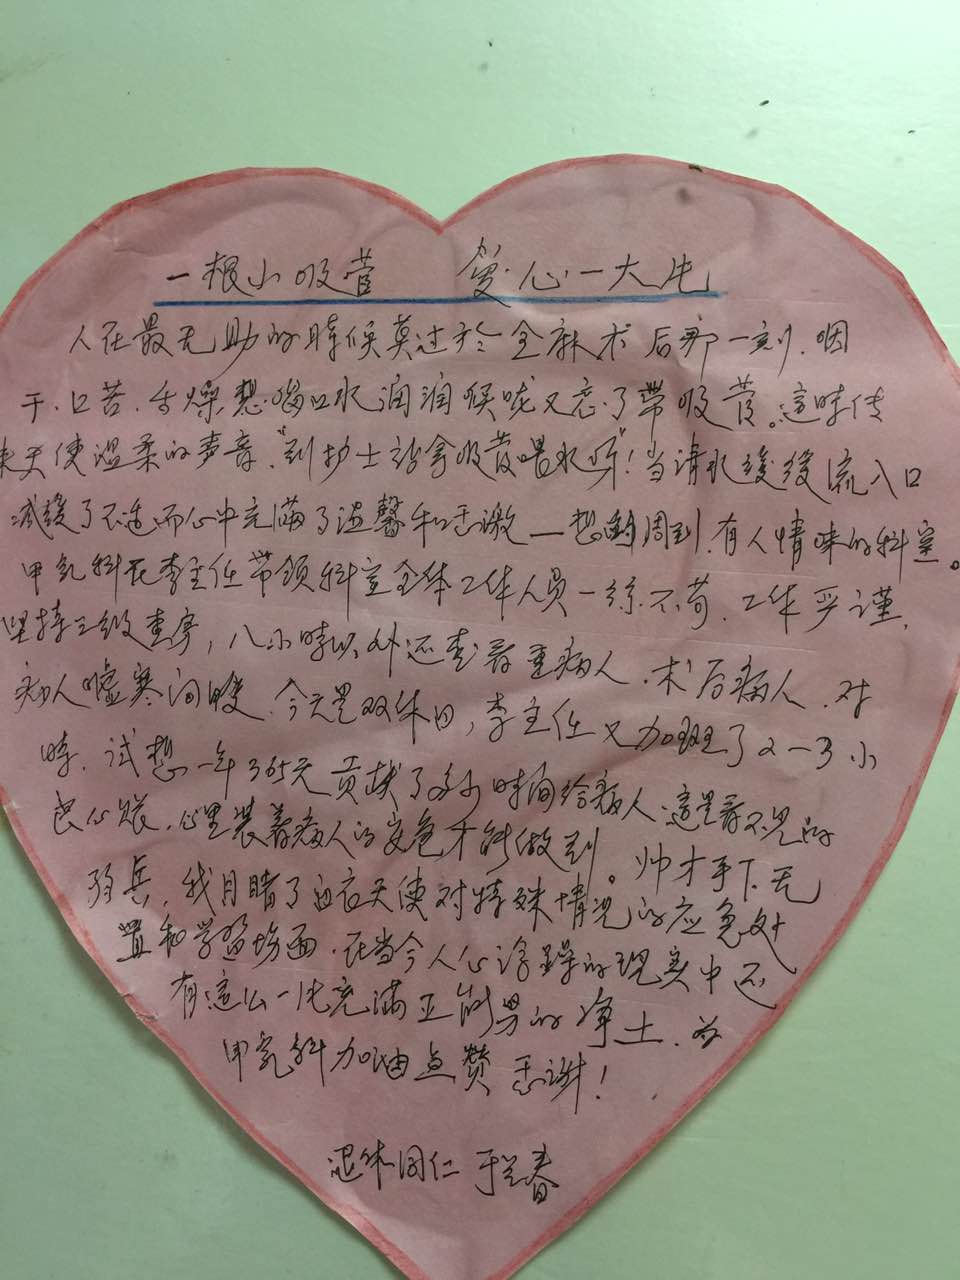 一根小吸管 爱心一大片
人在最无助的時候莫过於全麻术后那一刻.咽
干.口苦.舌燥想喝口水润润喉咙又忘了带吸管。這時传
来天使温柔的声音."到护士站拿吸管喂水呀"!当清水缓缓流入口
减缓了不适而心中充满了温馨和感激—想的周到.有人情味的科室。
甲乳科在李主任带领科室全体工作人员一丝不苟.工作严谨,
坚持三级查房,八小時以外还查看重病人.术后病人.对
病人嘘寒问暖.今天是双休日,李主任又加班了2一3小
時.试想一年365天贡献了多少時间给病人.這是看不见的
良心账.心里装着病人的安危才能做到。帅才手下无
弱兵,我目睹了白衣天使对特殊情况的应急处
置和学习场面.在当今人心浮躁的现实中还
有這么一片充满正能量的净土.为
甲乳科加油点赞感谢!
退休同仁 于兰春